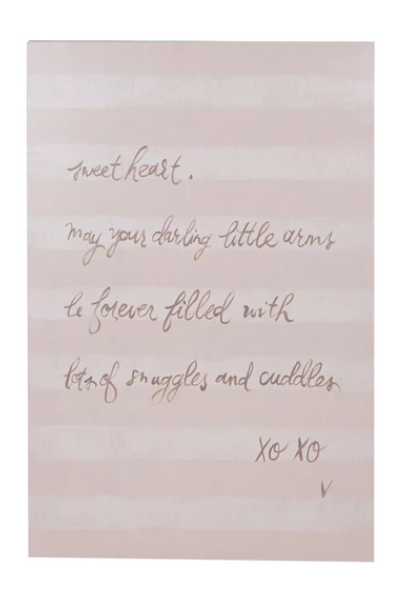 sweet heart.
may your darling little arms
be forever filled with
lots of snuggles and cuddles
XO XO
V